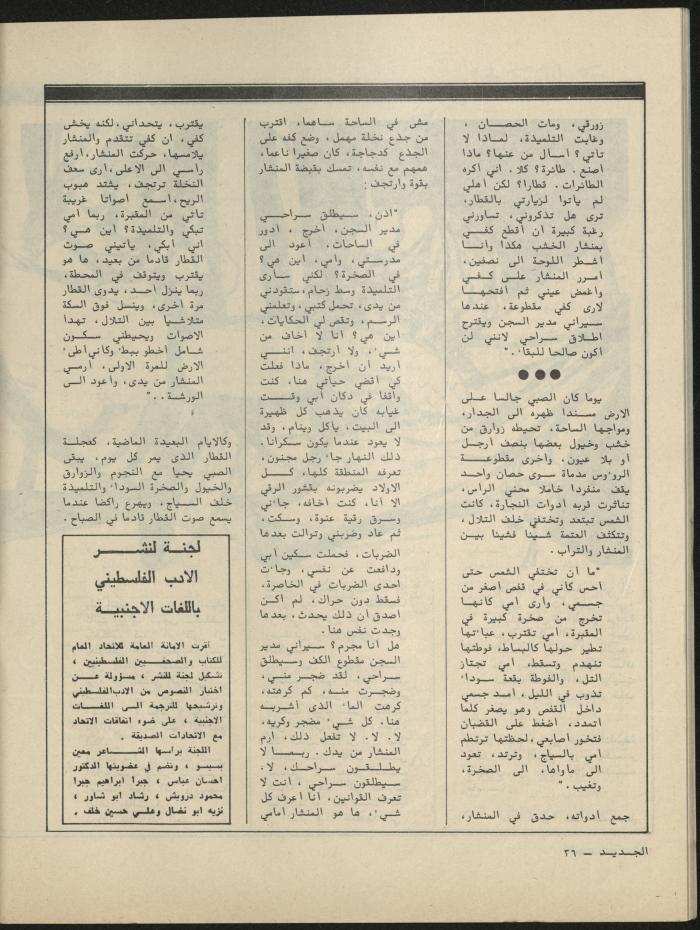 زورقي، ومات الحصان ،
وغابت التلميذة، لماذا لا
تأتي؟ أسأل من عنها؟ ماذا
أصنع. طائرة؟ كلا. اني اكره
الطائرات. قطارا؟ لكن أهلي
لم يأتوا لزيارتي بالقطار،
ترى هل تذكروني، تساورني
رغبة كبيرة أن أقطع كفي
بمنشار الخشب هكذا وأنا
أشطر اللوحة الى نصفين،
أمرر المنشار على كفي
وأغمض عيني ثم أفتحها
لارى كفي مقطوعة، عندها
سيراني مدير السجن ويقترح
اطلاق سراحي لانني لن
أكون صالحا للبقاء."
●●●
يوما كان الصبي جالسا على
الارض مسندا ظهره الى الجدار،
ومواجها الساحة، تحيطه زوارق من
خشب وخيول بعضها بنصف أرجل
أو بلا عيون، وأخرى مقطوعة
الرؤوس مدماة سوى حصان واحد
يقف منفردا خاملا محني الرأس،
تناثرت قربه أدوات النجارة، كانت
الشمس تبتعد وتختفي خلف التلال،
وتتكثف العتمة شيئا فشيئا بين
المنشار والتراب.
"ما أن تختفي الشمس حتى
أحس كأني في قفص أصغر من
جسمي، وأرى أمي كأنها
تخرج من صخرة كبيرة في
المقبرة، أمي تقترب، عباءتها
تطير حولها كالبساط، فوطتها
تنهدم وتسقط، أمي تجتاز
التل، والفوطة بقعة سوداء
تذوب في الليل، أمد جسمي
داخل القفص وهو يصغر كلما
أتمدد، أضغط على القضبان
فتخور أصابعي، لحظتها ترتطم
أمي بالسياج، وترتد، تعود
الى مأواها، الى الصخرة،
وتغيب."
جمع أدواته، حدق في المنشار،
مشى في الساحة ساهما، اقترب
من جذع نخلة مهمل، وضع كفه على
الجذع كدجاجة، كان صغيرا ناعما،
همهم مع نفسه، تمسك بقبضة المنشار
بقوة وارتجف:
"اذن، سيطلق سراحي
مدير السجن، أخرج ، أدور
في الساحات، أعود الى
مدرستي، وأمي، أين هي؟
في الصخرة؟ لكني سأرى
التلميذة وسط زحام، ستقودني
من يدي، تحمل كتبي، وتعلمني
الرسم، وتقص لي الحكايات،
أين هي؟ أنا لا أخاف من
شيء، ولا أرتجف، انني
أريد أن أخرج، ماذا فعلت
كي أقضي حياتي هنا، كنت
واقفا في دكان أبي وقت
غيابه كان يذهب كل ظهيرة
الى البيت، يأكل وينام، وقد
لا يعود عندما يكون سكرانا.
ذلك النهار جاء رجل مجنون،
تعرفه المنطقة كلها، كل
الاولاد يضربونه بقشور الرقي
الا أنا، كنت أخافه، جاءني
وسرق رقية عنوة، وسكت،
ثم عاد وضربني وتوالت بعدها
الضربات، فحملت سكين أبي
ودافعت عن نفسي، وجاءت
احدى الضربات في الخاصرة،
فسقط دون حراك، لم أكن
أصدق أن ذلك يحدث، بعدها
وجدت نفس هنا.
هل أنا مجرم؟ سيراني مدير
السجن مقطوع الكف وسيطلق
سراحي، لقد ضجر مني،
وضجرت منه، كم كرهته،
كرهت الماء الذي أشربه
هنا، كل شيء مضجر وكريه،
لا. لا. لا تفعل ذلك، ارم
المنشار من يدك. ربما لا
يطلقون سراحك، لا.
سيطلقون سراحي، أنت لا
تعرف القوانين، أنا أعرف كل
شيء، ها هو المنشار أمامي
يقترب، يتحداني، لكنه يخشى
كفي، ان كفي تتقدم والمنشار
يلامسها، حركت المنشار، أرفع
رأسي الى الاعلى، أرى سعف
النخلة ترتجف، يشتد هبوب
الريح، أسمع أصواتا غريبة
تأتي من المقبرة، ربما أمي
تبكي والتلميذة؟ أين هي؟
اني أبكي، يأتيني صوت
القطار قادما من بعيد، ها هو
يقترب ويتوقف في المحطة،
ربما ينزل أحد، يدوي القطار
مرة أخرى، وينسل فوق السكة
متلاشيا بين التلال، تهدأ
الاصوات ويحيطني سكون
شامل أخطو ببطء وكأني أطىء
الارض للمرة الاولى، أرمي
المنشار من يدي، وأعود الى
الورشة.."
وكالايام البعيدة الماضية، كعجلة
القطار الذي يمر كل يوم، يبقى
الصبي يحيا مع النجوم والزوارق
والخيول والصخرة السوداء والتلميذة
خلف السياج، ويهرع راكضا عندما
يسمع صوت القطار قادما في الصباح.
لجنة لنشر
الادب الفلسطيني
باللغات الاجنبية
أقرت الامانة العامة للاتحاد العام
للكتاب والصحفيين الفلسطينيين ،
تشكيل لجنة للنشر ، مسؤولة عن
اختيار النصوص من الادب الفلسطيني
وترشيحها للترجمة الى اللغات
الاجنبية ، على ضوء اتفاقات الاتحاد
مع الاتحادات الصديقة .
اللجنة يراسها الشاعر معين
بسيسو ، وتضم في عضويتها الدكتور
احسان عباس ، جبرا ابراهيم جبرا
محمود درويش ، رشاد ابو شاور ،
نزيه ابو نضال وعلي حسين خلف .
الجديد – ٣٦